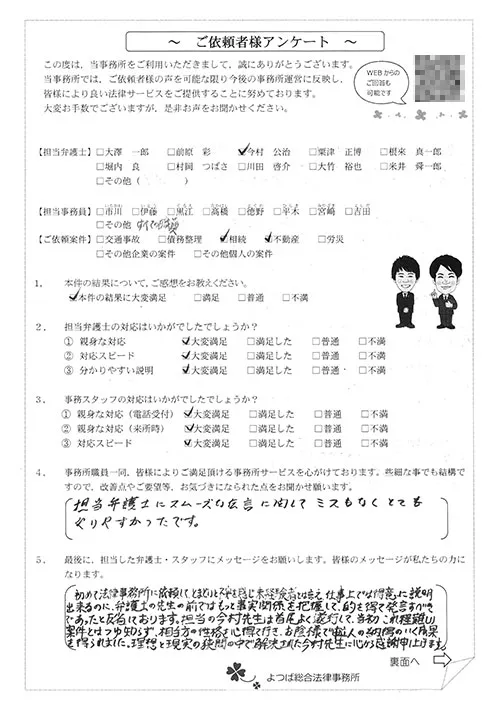 ～ ご依頼者様アンケート ～
この度は、当事務所をご利用いただきまして、誠にありがとうございます。
当事務所では、ご依頼者様の声を可能な限り今後の事務所運営に反映し、
皆様により良い法律サービスをご提供することに努めております。
大変お手数でございますが、是非お声をお聞かせください。
WEBからの
ご回答も
可能です
【担当弁護士】□大澤 一郎 □前原 彩 ☑今村 公治 □粟津 正博 □根來 真一郎
□堀内 良 □村岡 つばさ □川田 啓介 □大竹 裕也 □米井 舜一郎
□その他（ ）
【担当事務員】□市川 □伊藤 □黒江 □高橋 □徳野 □平木 □宮崎 □吉田
□その他 すべての
【ご依頼案件】□交通事故 □債務整理 ☑相続 ☑不動産 □労災
□その他企業の案件 □その他個人の案件
1． 本件の結果について、ご感想をお教えください。
☑本件の結果に大変満足 □満足 □普通 □不満
2． 担当弁護士の対応はいかがでしたでしょうか？
① 親身な対応 ☑大変満足 □満足した □普通 □不満
② 対応スピード ☑大変満足 □満足した □普通 □不満
③ 分かりやすい説明 ☑大変満足 □満足した □普通 □不満
3． 事務スタッフの対応はいかがでしたでしょうか？
① 親身な対応（電話受付） ☑大変満足 □満足した □普通 □不満
② 親身な対応（来所時） ☑大変満足 □満足した □普通 □不満
③ 対応スピード ☑大変満足 □満足した □普通 □不満
4． 事務所職員一同、皆様によりご満足頂ける事務所サービスを心がけております。些細な事でも結構で
すので、改善点やご要望等、お気づきになられた点をお聞かせ願います。
担当弁護士にスムーズな伝言に関してミスもなくとても
やりやすかったです。
5． 最後に、担当した弁護士・スタッフにメッセージをお願いします。皆様のメッセージが私たちの力に
なります。
初めて法律事務所に依頼してとまどいと不安を感じ未経験者とは言え仕事上では得意に説明
出来るのに、弁護士の先生の前ではもっと事実関係を把握して、的を得て発言すべき
であったと反省しております。担当の今村先生は首尾よく遂行して、当初これ程難しい
案件とはつゆ知らず、相手方の性格を心得て行き、お陰様で の納得のいく成果
を得られました。理想と現実の狭間の中で解決された今村先生に心から感謝申し上げます。
裏面へ
よつば総合法律事務所